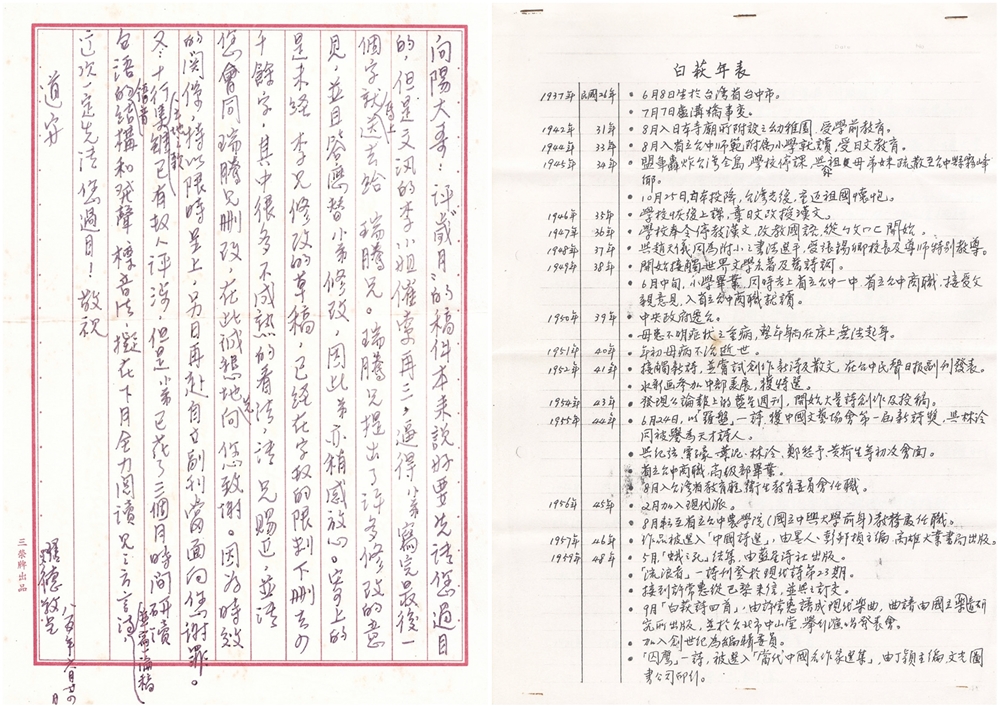 向陽大哥：評「歲月」的稿件本來說好要先請您過目
的，但是文訊的李小姐催索再三，逼得小弟寫完最後一
個字就馬上送去給瑞騰兄。瑞騰兄提出了許多修改的意
見，並且答應替小弟修改，因此弟亦稍感放心。寄上的
是未經李兄修改的草稿，已經在字數的限制下刪去少
千餘字，其中很多不成熟的看法，請兄賜正，並請
您會同瑞騰兄刪改，在此誠懇地向您致謝。因為時效
的關係，特以限時呈上，另日再赴自立副刊當面向您謝罪。
又：十行集雖已有故人評涉，但是小弟已花了三個月時間研讀
台語的結構和發聲 標音法 擬在下月全力閱讀兄之方言詩
這次一定先請您過目！敬祝
道安
三榮牌出品
白萩年表
1937年 民國26年 •6月8日生於台灣省台中市。
•7月7日盧溝橋事變。
1942年 31年 •8月入日本寺廟所附設之幼稚園，受學前教育。
1944年 33年 •8月入省立台中師範附屬小學就讀，受日文教育。
1945年 34年 •盟軍轟炸台灣全島，學校停課，與祖父母弟妹疏散至台中縣霧峰
鄉。
•10月25日日本投降，台灣光復，重返祖國懷抱。
1946年 35年 •學校恢復上課，棄日文改授漢文。
1947年 36年 •學校奉令停教漢文，改教國語，從ㄅㄆㄇㄈ開始。
1948年 37年 •與趙天儀同為附小之書法選手，受張錫卿校長及導師特別教導。
1949年 38年 •開始接觸世界文學名著及舊詩詞。
•6月中旬，小學畢業，同時考上省立台中一中、省立台中商職，接受父
親意見，入省立台中商職就讀。
1950年 39年 •中央政府遷台。
•母患不明症狀之重病，整年躺在床上無法起身。
1951年 40年 •年初母病不治逝世。
1952年 41年 •接觸新詩，並嘗試創作新詩及散文，在台中民聲日報副刊發表。
•水彩畫參加中部美展，獲特選。
1954年 43年 •發現公論報上的藍星週刊，開始大量詩創作及投稿。
1955年 44年 •6月24日，以「羅盤」一詩，獲中國文藝協會第一屆新詩獎，與林泠
同被譽為天才詩人。
•與紀弦、覃子豪、葉泥、林泠、鄭愁予、黃荷生等初次會面。
•省立台中商職，高級部畢業。
•8月入台灣省教育廳，衛生教育委員會任職。
1956年 45年 •2月加入現代派。
•8月轉至省立台中農學院（國立中興大學前身）教務處任職。
1957年 46年 •作品被選入「中國詩選」，由墨人、彭邦楨主編，高雄大業書局出版。
1959年 48年 •5月「蛾之死」結集，由藍星詩社出版。
•「流浪者」一詩刊登於現代詩第23期。
•接到許常惠從巴黎來信，並與之訂交。
•9月「白萩詩四首」，由許常惠譜成現代樂曲，曲譜由國立樂譜研
究所出版，並於台北市中山堂，舉行演唱發表會。
•加入創世紀為編輯委員。
•「囚鷹」一詩，被選入「當代中國名作家選集」，由丁穎主編，文光圖
書公司印行。